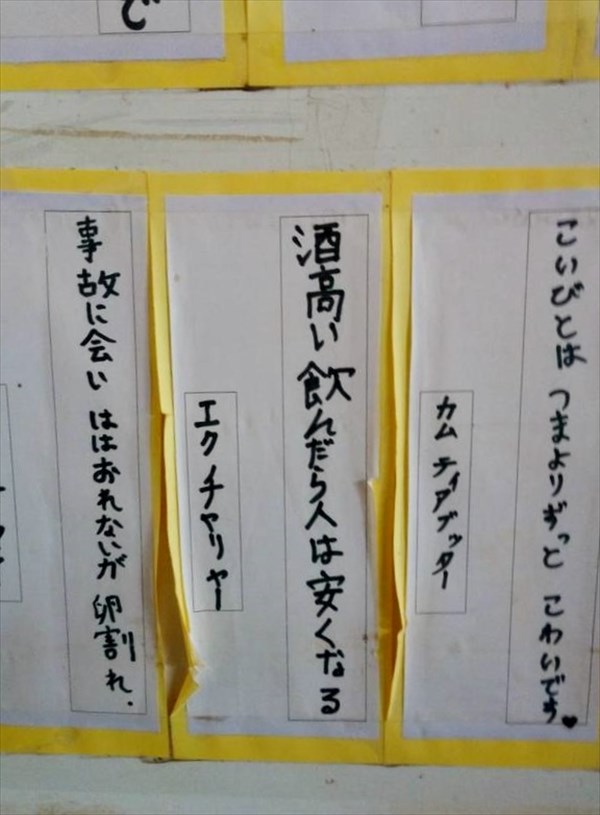 で
こいびとは つまよりずっと こわいです♥
カム ティアブッター
酒高い 飲んだら人は安くなる
エク チャリャー
事故に会い ははおれないが 卵割れ.